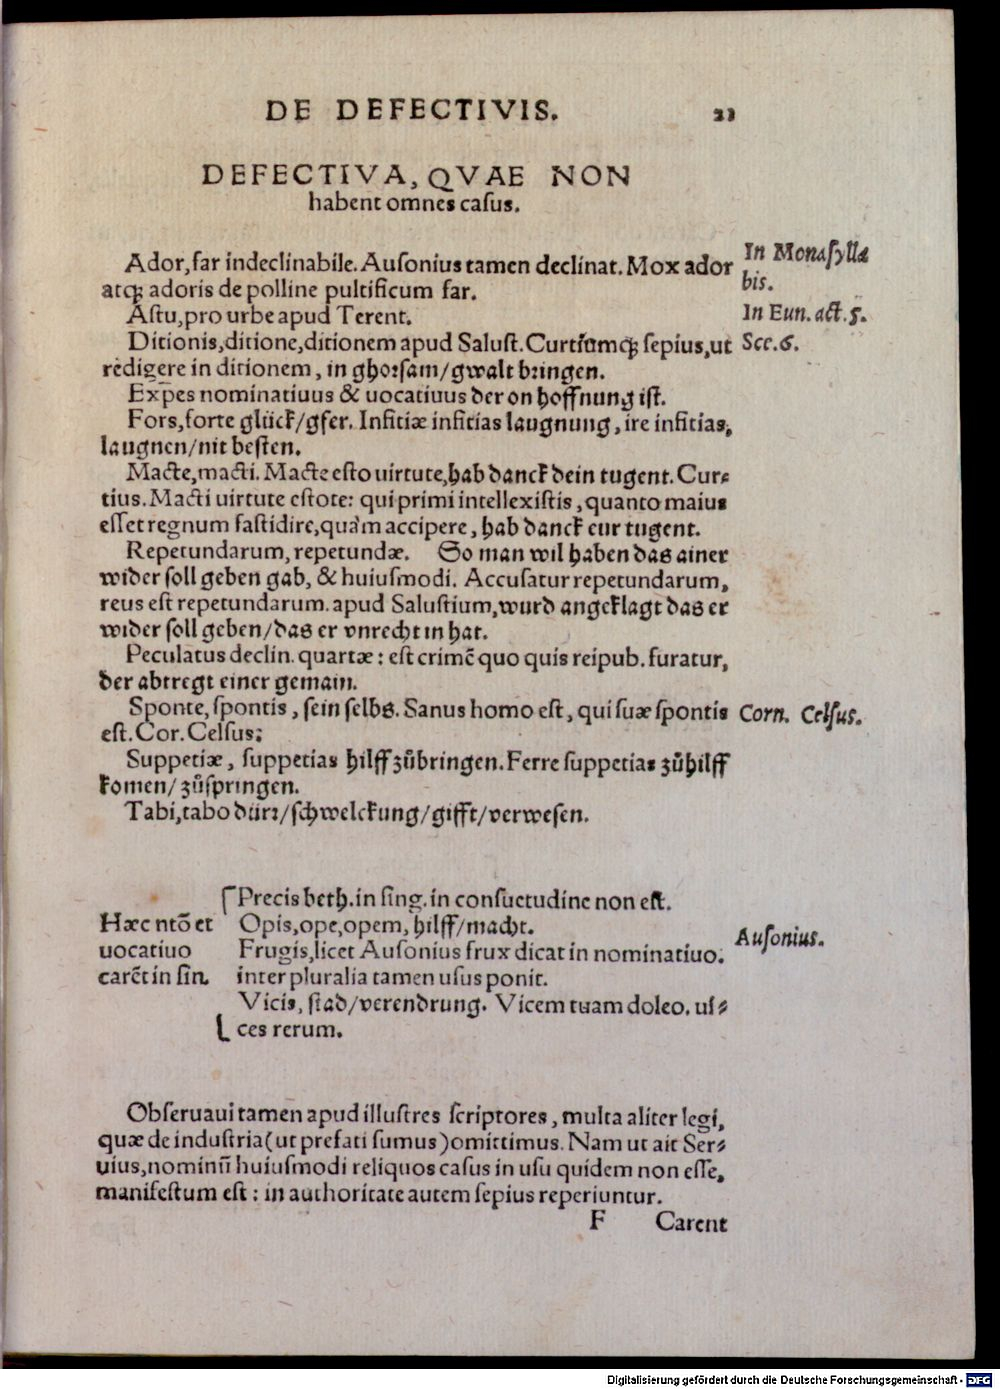 DE DEFECTIVIS. 21
DEFECTIVA, QVAE NON
habent omnes casus.
Ador, far indeclinabile. Ausonius tamen declinat. Mox ador
atq; adoris de polline pultificum far.
In Monasylla
bis.
Astu, pro urbe apud Terent.
In Eun. act. 5.
Ditionis, ditione, ditionem apud Salust. Curtiumq; sepius, ut
Sce. 6.
redigere in ditionem, in ghorsam/gwalt bringen.
Expes nominatiuus & uocatiuus der on hoffnung ist.
Fors, forte glück/gfer. Infitiæ infitias laugnung, ire infitias,
laugnen/nit besten.
Macte, macti. Macte esto uirtute, hab danck dein tugent. Cur⸗
tius. Macti uirtute estote: qui primi intellexistis, quanto maius
esset regnum fastidire, quàm accipere, hab danck eur tugent.
Repetundarum, repetundæ. So man wil haben das ainer
wider soll geben gab, & huiusmodi. Accusatur repetundarum,
reus est repetundarum. apud Salustium, wurd angeklagt das er
wider soll geben/das er vnrecht in hat.
Peculatus declin. quartæ: est crimē quo quis reipub. furatur,
der abtregt einer gemain.
Sponte, spontis, sein selbs. Sanus homo est, qui suæ spontis
Corn. Celsus.
est. Cor. Celsus:
Suppetiæ, suppetias hilff zůbringen. Ferre suppetias zůhilff
komen/zůspringen.
Tabi, tabo dürr/schwelckung/gifft/verwesen.
Precis beth. in sing. in consuetudine non est.
Hæc ntō et Opis, ope, opem, hilff/macht.
uocatiuo Frugis, licet Ausonius frux dicat in nominatiuo.
Ausonius.
carēt in sin. inter pluralia tamen usus ponit.
Vicis, stad/verendrung. Vicem tuam doleo. ui⸗
ces rerum.
Obseruaui tamen apud illustres scriptores, multa aliter legi,
quæ de industria (ut prefati sumus) omittimus. Nam ut ait Ser⸗
uius, nominū huiusmodi reliquos casus in usu quidem non esse,
manifestum est: in authoritate autem sepius reperiuntur.
F Carent
Digitalisierung gefördert durch die Deutsche Forschungsgemeinschaft - DFG